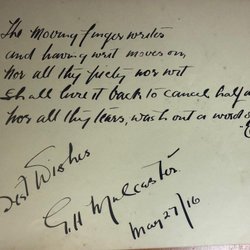 The Moving finger writes
and having writ moves on,
Nor all thy piety nor wit
Shall lure it back to cancel half a
Nor all thy tears, wash out a word o
Best Wishes
G.H. Mulcaster.
May 27/16